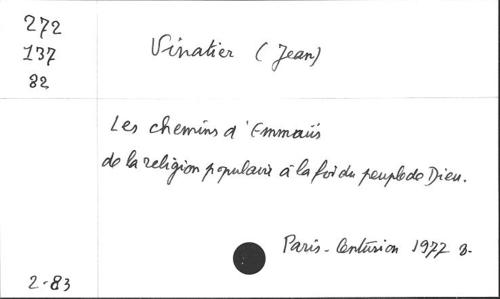 272
137
82
Vinatier (Jean)
Les chemins d'Emmaüs
de la religion populaire à la foi du peuple de Dieu.
Paris - Centurion 1977 8.
2-83